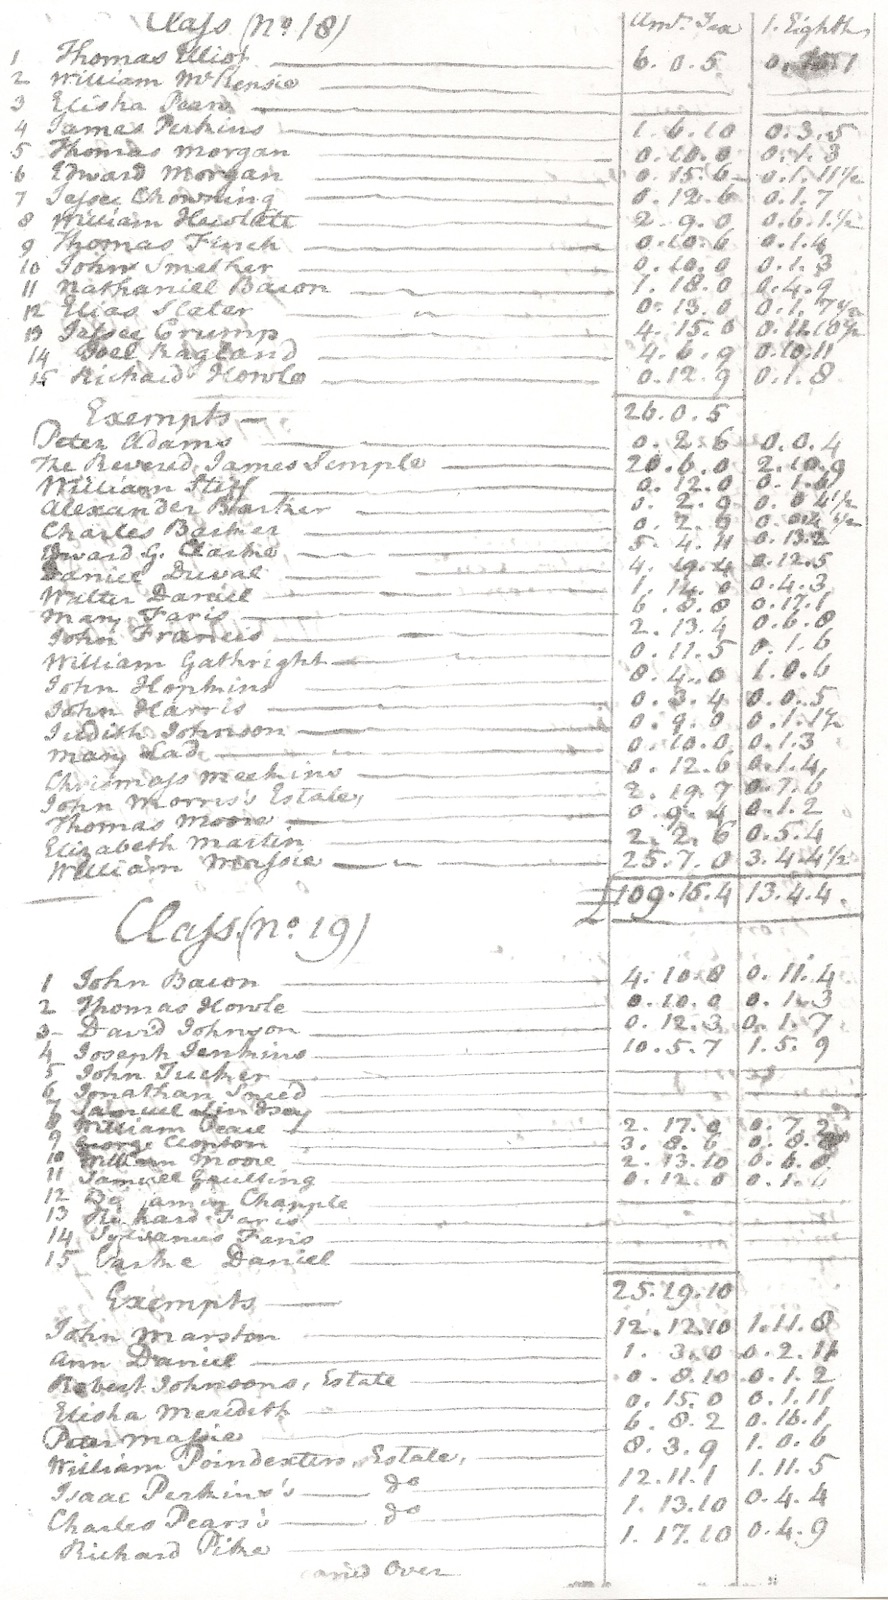 Class (No. 18) Amt. Tax 1. Eighth
1 Thomas Elliot 6. 0. 5
2 William McKensie
3 Elisha Pears
4 James Perkins 1. 6. 10 0. 3. 5
5 Thomas Morgan 0. 10. 0 0. 1. 3
6 Edward Morgan 0. 15. 6 0. 1. 11½
7 Jessee Chowning 0. 12. 6 0. 1. 7
8 William Howlett 2. 9. 0 0. 6. 1½
9 Thomas Finch 0. 10. 6 0. 1. 4
10 John Smether 0. 10. 0 0. 1. 3
11 Nathaniel Bacon 1. 18. 0 0. 4. 9
12 Elias Slater 0. 13. 0 0. 1. 7½
13 Jessee Crump 4. 15. 0 0. 11. 10½
14 Joel Ragland 4. 6. 9 0. 10. 11
15 Richard Howle 0. 12. 9 0. 1. 8
Exempts 26. 0. 5
Peter Adams 0. 2. 6 0. 0. 4
The Revered James Semple 20. 6. 0 2. 10. 9
William Stiff 0. 12. 0 0. 1. 6
Alexander Barker 0. 2. 9 0. 0. 4½
Charles Barker 0. 2. 9
Edward G. Clarke 5. 4. 11 0. 13. 2
Daniel Duval 4. 19. 4 0. 12. 5
Walter Daniel 1. 14. 0 0. 4. 3
Mary Faris 6. 8. 8 0. 17. 1
John Francis 2. 13. 4 0. 6. 8
William Gathright 0. 11. 5 0. 1. 6
John Hopkins 8. 4. 0 1. 0. 6
John Harris 0. 3. 4 0. 0. 5
Judith Johnson 0. 9. 0 0. 1. 1½
Mary Lad 0. 10. 0 0. 1. 3
Chrismass Meekins 0. 12. 6 0. 1. 4
John Morris's Estate, 2. 19. 7 0. 7. 6
Thomas Moore 0. 9. 4 0. 1. 2
Elizabeth Martin 2. 2. 6 0. 5. 4
William Massie 25. 7. 0 3. 4. 4½
£109. 15. 4 13. 4. 4.
Class (No. 19)
1 John Bacon 4. 10. 8 0. 11. 4
2 Thomas Howle 0. 10. 0 0. 1. 3
3 David Johnson 0. 12. 3 0. 1. 7
4 Joseph Jenkins 10. 5. 7 1. 5. 9
5 John Tucker
6 Jonathan Sneed
7 Samuel Lindsey
8 William Peace 2. 17. 0 0. 7. 2
9 George Clopton 3. 8. 6 0. 8.
10 William Moore 2. 13. 10 0. 6. 8
11 Samuell Gaulting 0. 12. 0 0. 1. 6
12 Benjamin Chapple
13 Richard Faris
14 Sylvanus Faris
15 Parke Daniel
Exempts 25. 19. 10
John Marston 12. 12. 10 1. 11. 8
Ann Daniel 1. 3. 0 0. 2. 11
Robert Johnsons, Estate 0. 8. 10 0. 1. 2
Elisha Meredith 0. 15. 0 0. 1. 11
Peter Massie 6. 8. 2 0. 16. 1
William Poindexters, Estate, 8. 3. 9 1. 0. 6
Isaac Perkins's do 12. 11. 1 1. 11. 5
Charles Pears's do 1. 13. 10 0. 4. 4
Richard Pike 1. 17. 10 0. 4. 9
Over